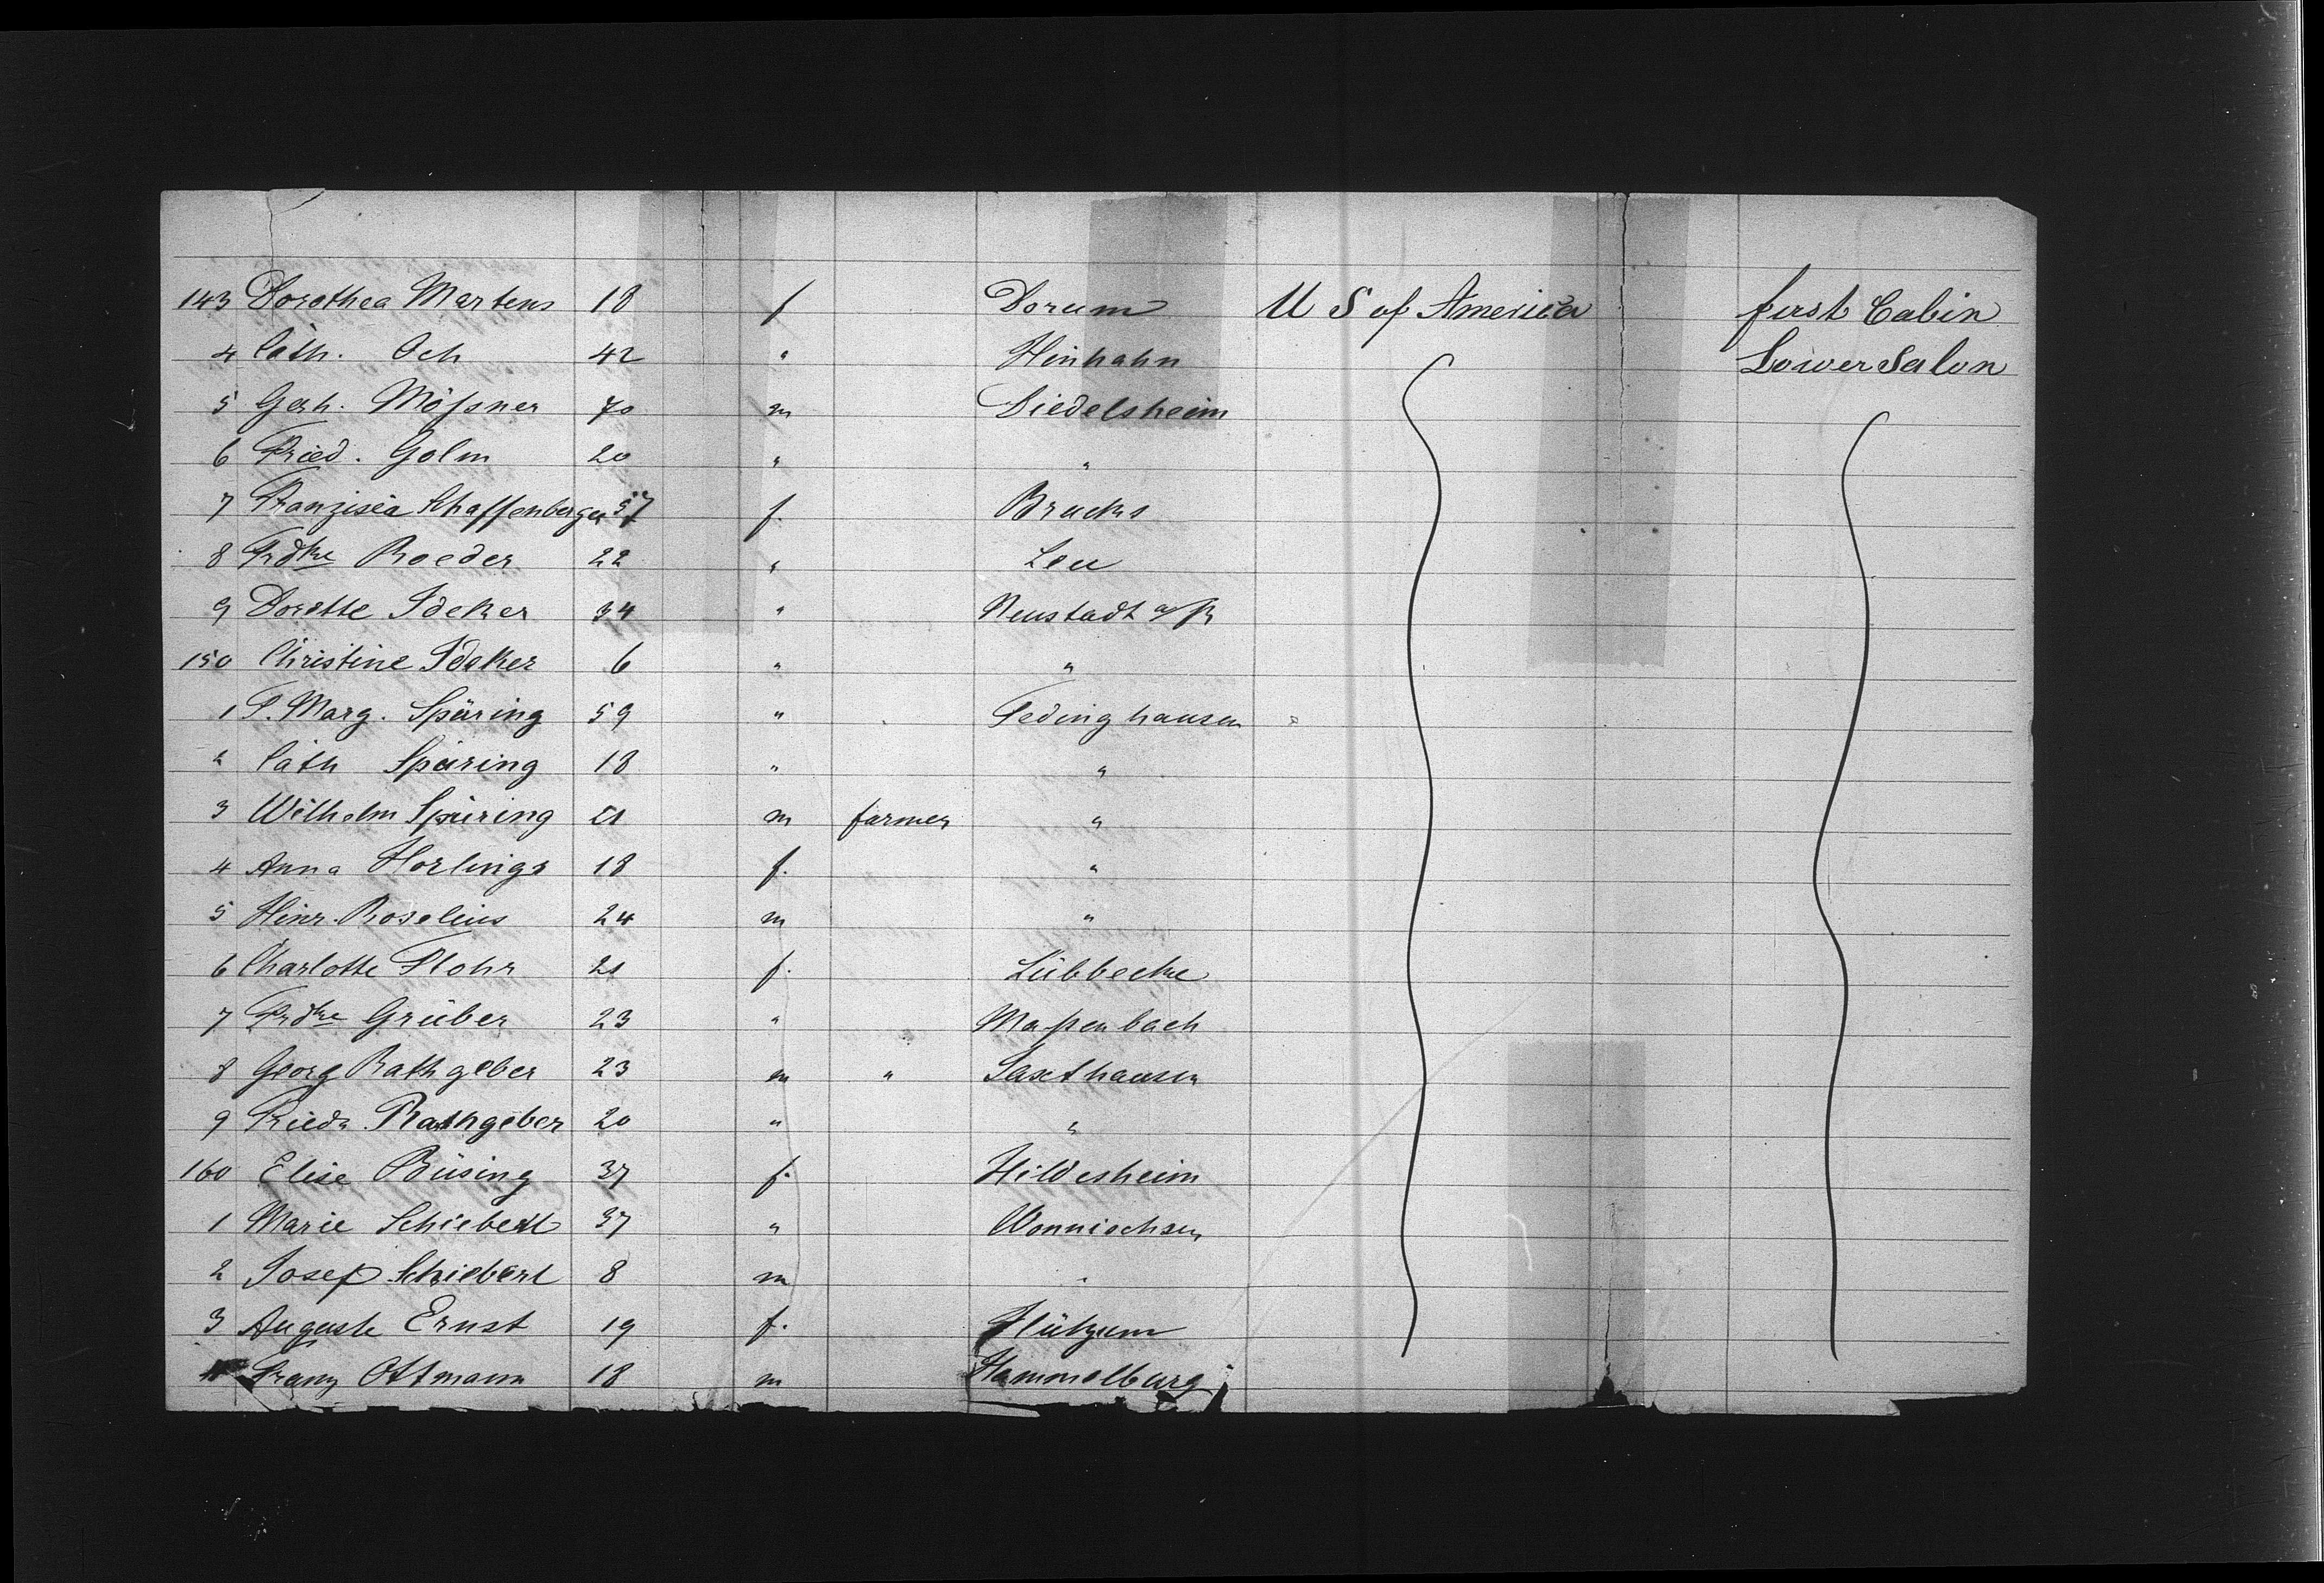 143 Dorothea Martens 18 f Dorum U S of America first Cabin
4 Cath. Och 42 " Hinhahn Lower Salon
5 Gerh. Mößner 70 m Diedelsheim
6 Fried. Golm 20 " "
7 Franzisca Schaffenberger 57 f. Brucks
8 Frdke Roeder 22 " Leu
9 Dorette Ideker 34 " Neustadt a/R
150 Christine Ideker 6 " "
1 F. Marg. Späring 59 " Fedinghausen
2 Cath Späring 18 " "
3 Wilhelm Späring 21 m farmer "
4 Anna Horlings 18 f. "
5 Hinr. Roselius 24 m "
6 Charlotte Flohr 21 f. Lübbecke
7 Frdke Grüber 23 " Maßenbach
8 Georg Rathgeber 23 m " Saxthausen
9 Frieda Rathgeber 20 " "
160 Elise Büsing 37 f. Hildesheim
1 Marie Schieberl 37 " Wonnischsen
2 Josef Schieberl 8 m "
3 Auguste Ernst 19 f.
4 Franz Ottmann 18 m Hammelburg